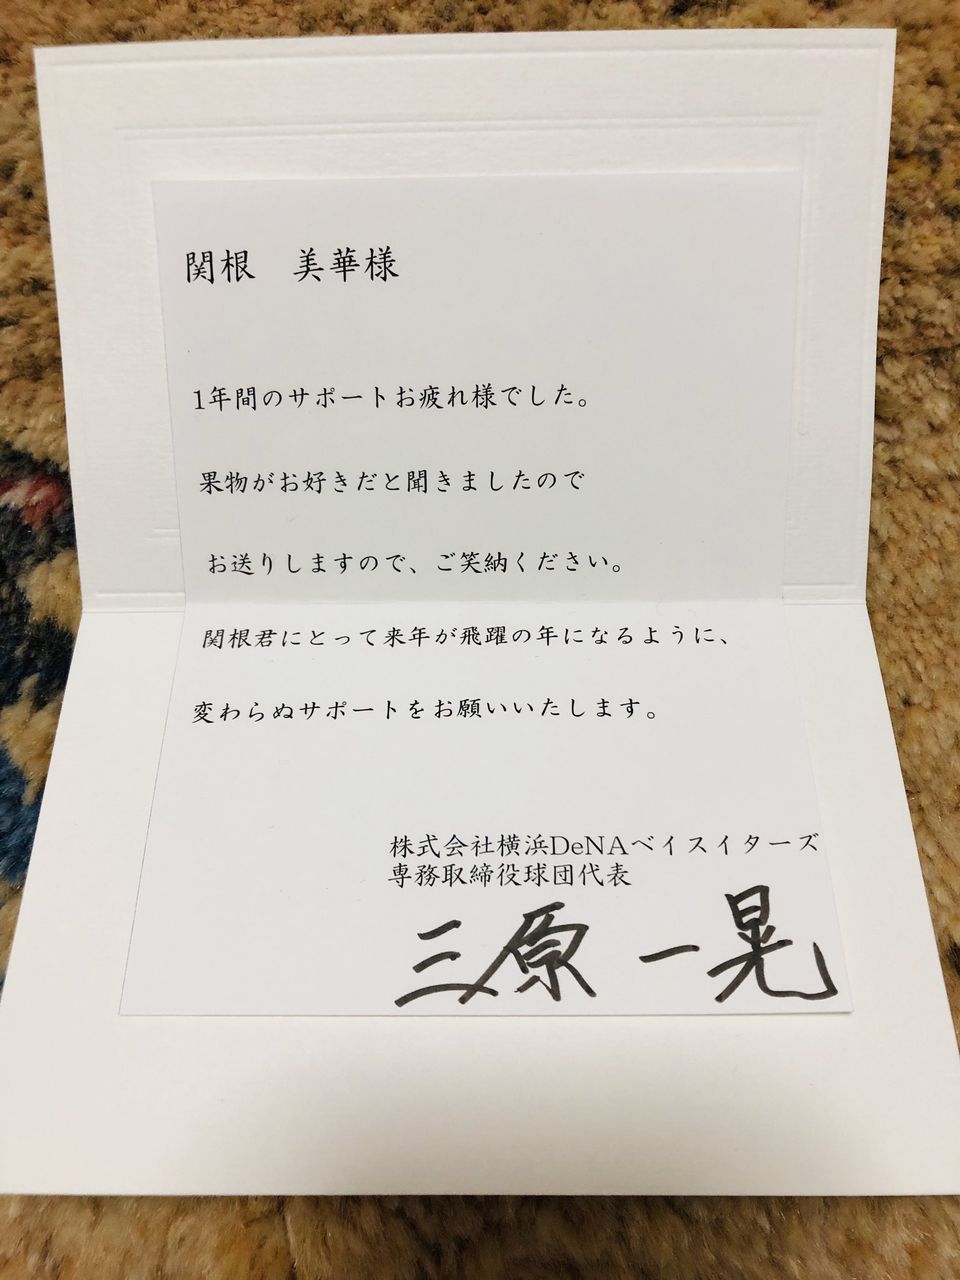 関根　美華様
1年間のサポートお疲れ様でした。
果物がお好きだと聞きましたので
お送りしますので、ご笑納ください。
関根君にとって来年が飛躍の年になるように、
変わらぬサポートをお願いいたします。
株式会社横浜DeNAベイスイターズ
専務取締役球団代表
三原 一晃